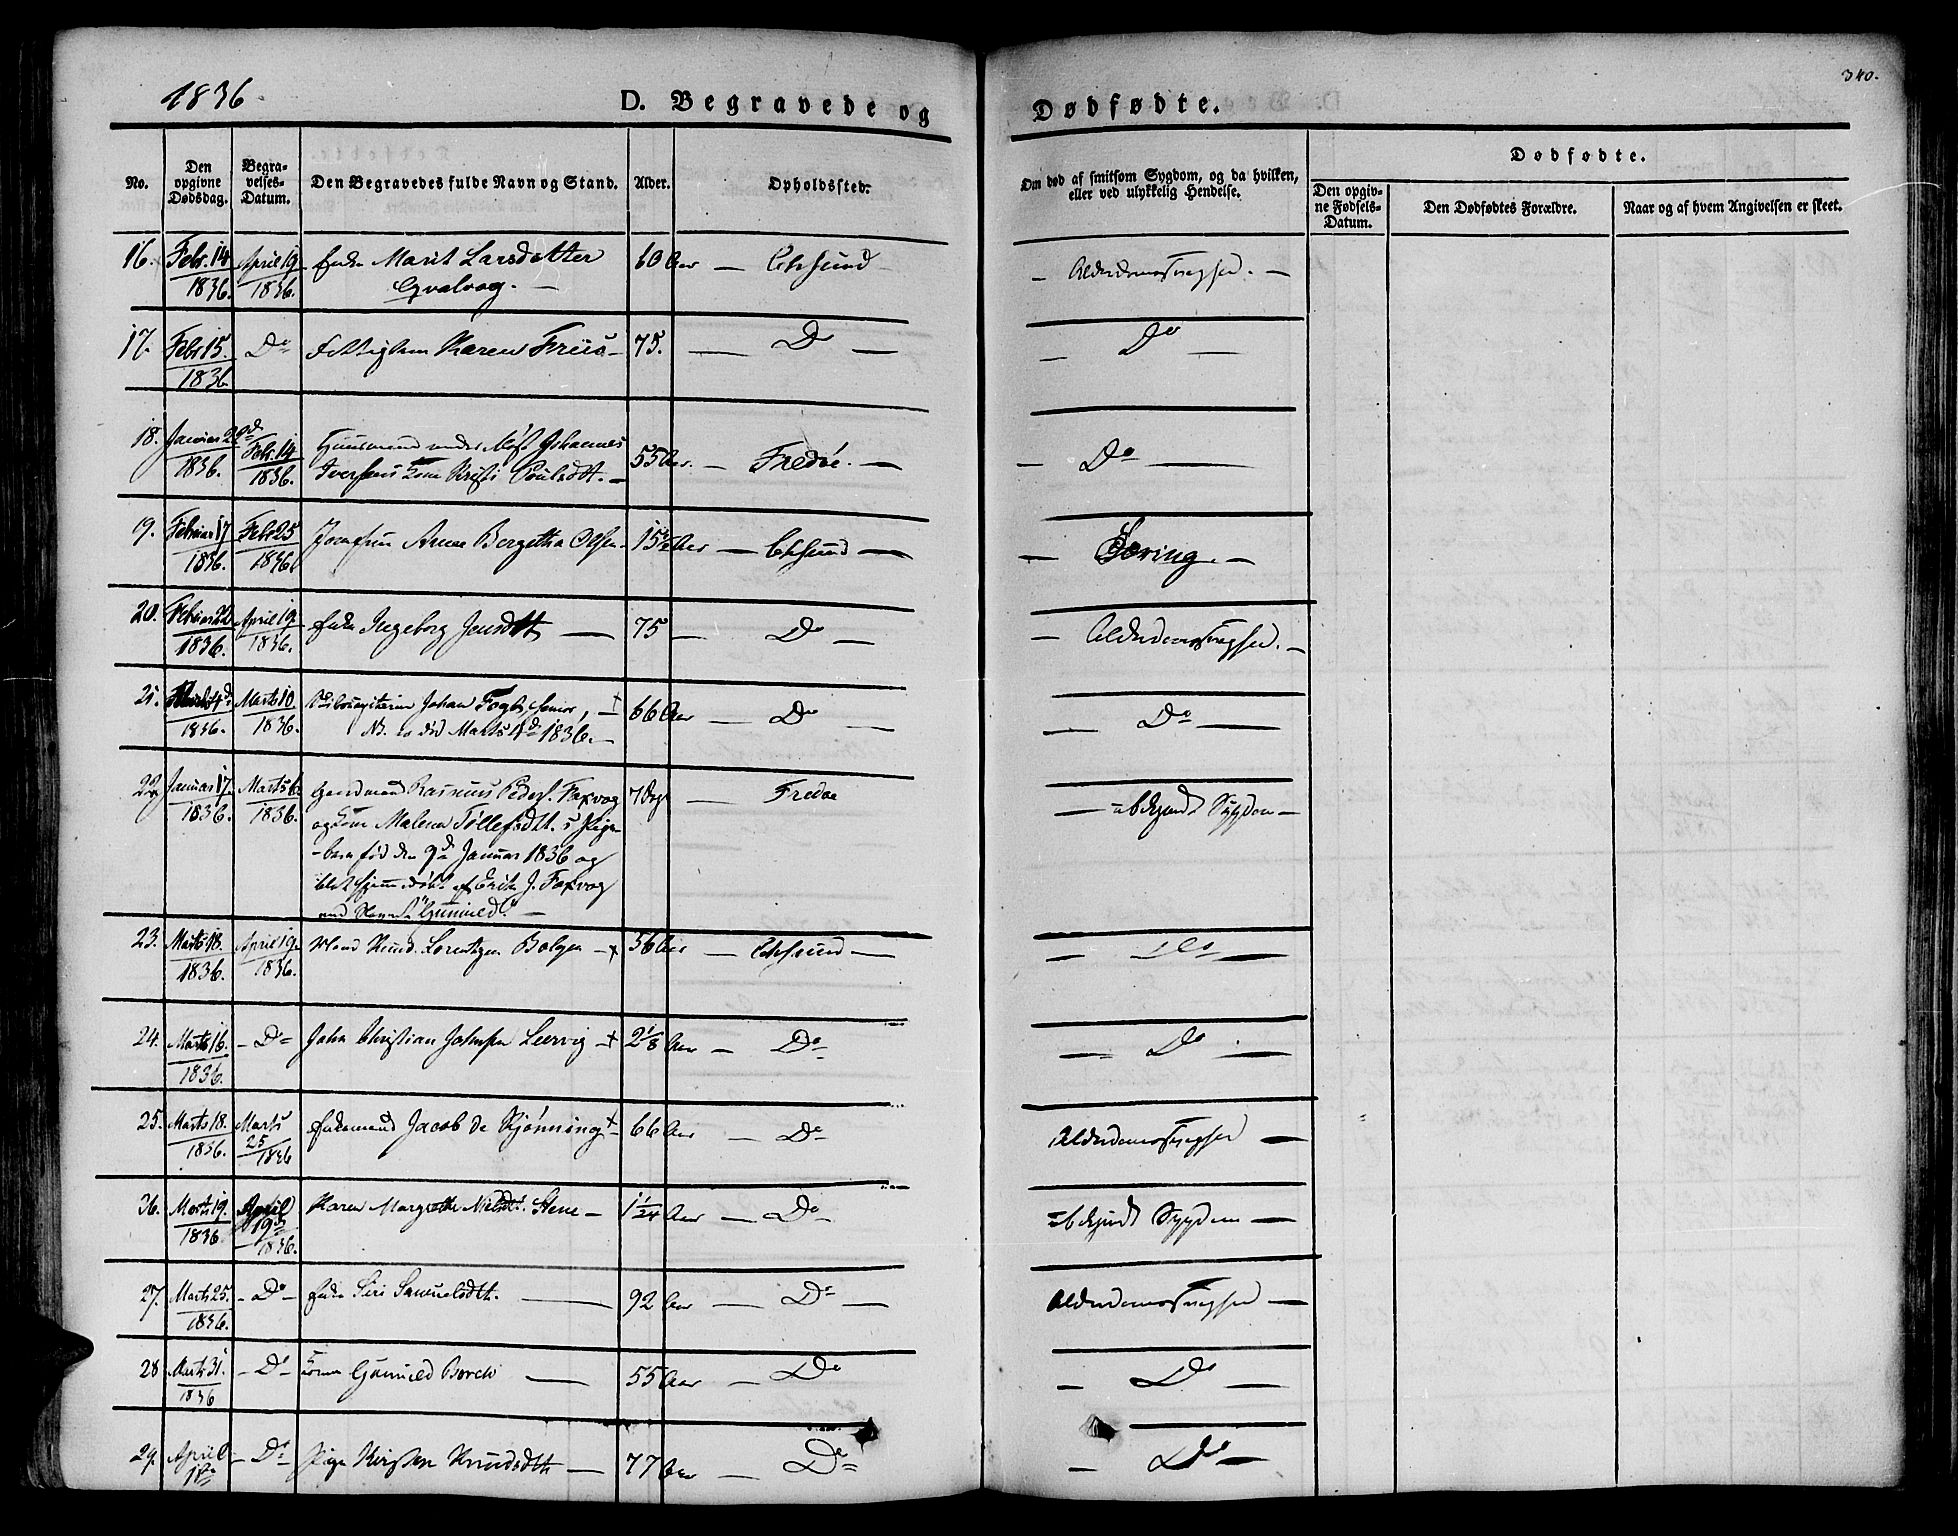 340.
1836.
D. Begravede og Dødfødte.
No.
Den opgivne Dødsdag.
Begravelses-Datum.
Den Begravedes fulde Navn og Stand.
Alder.
Opholdssted.
Om død af smitsom Sygdom, og da hvilken,
eller ved ulykkelig Hendelse.
Dødfødte.
Den opgivne Fødsels-Datum.
Den Dødfødtes Forældre.
Naar og af hvem Angivelsen er skeet.
16. Febr. 14 1836. April 19 1836. Enke Marit Larsdatter 60 Aar — Chrsund — Alderdomssvaghed. —
Qvalvog. —
17. Febr 15. 1836 Do Karen Friis — 75. — Do — Do —
18. 1836. Febr. 14 1836. Huusmand Johannes
Iversens Kone Kristi Poulsdt. — 55 Aar. — Fredøe. — Do —
19. Februar 17 1836. Febr 25 1836. Jomfrue Anne Bergetha Olsen 15½ Aar — Chrsund — Bæring. —
20. Februar 22 1836. April 19. 1836. Enke Ingeborg Jensdtt — 75 — Do — Alderdomssvaghed. —
21. 1836. Marts 10. 1836. Johan Fogh senior, — 66 Aar — Do — Do —
NB. er død Marts 1836. —
22. Januar 17. 1836. Marts 6. 1836. Gaardmand Rasmus Peders. Foxvog 7 Dage — Fredøe — ubekjendt Sygdom —
og Kone Malena Tollefsdtt. s Pige-
barn fød den 9de Januar 1836 og
blev hjemmedøbt af Erik J. Foxvog
ved Navnet "Gunnild". —
23. Marts 18. 1836. April 19. 1836. Knud Lorentzen Bolgen — 56 Aar — Chrsund — Do —
24. Marts 16. 1836. — Do — John Christian Johnsen Leervig — 2⅛ Aar — Do — Do —
25. Marts 18. 1836. Marts 25 1836 Enkemand Jacob de Skjønning — 66 Aar — Do — Alderdomssvaghed —
26. Marts 19. 1836 April 19de 1836. Karen Margrethe Nielsdt. Stene — 1 1/24 Aar — Do — ubekjendt Sygdom —
27. Marts 25. 1836. — Do — Enke Siri Samuelsdtt. — 92 Aar — Do — Alderdomssvaghed —
28 Marts 31. 1836 — Do — Kone Gunnild Borch — 55 Aar — Do — Do —
29. April — Do — Pige Kirsten Knudsdtt — 77 Aar — Do — Do —